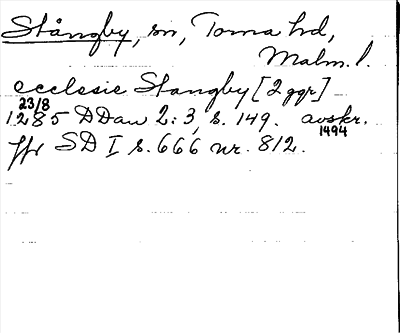 Stångby, sn, Torna hd,
Malm. l.
ecclesie Stangby [2 ggr]
23/8
1285 DDan 2:3, s. 149. avskr.
1494
jfr SD I s. 666 nr. 812.